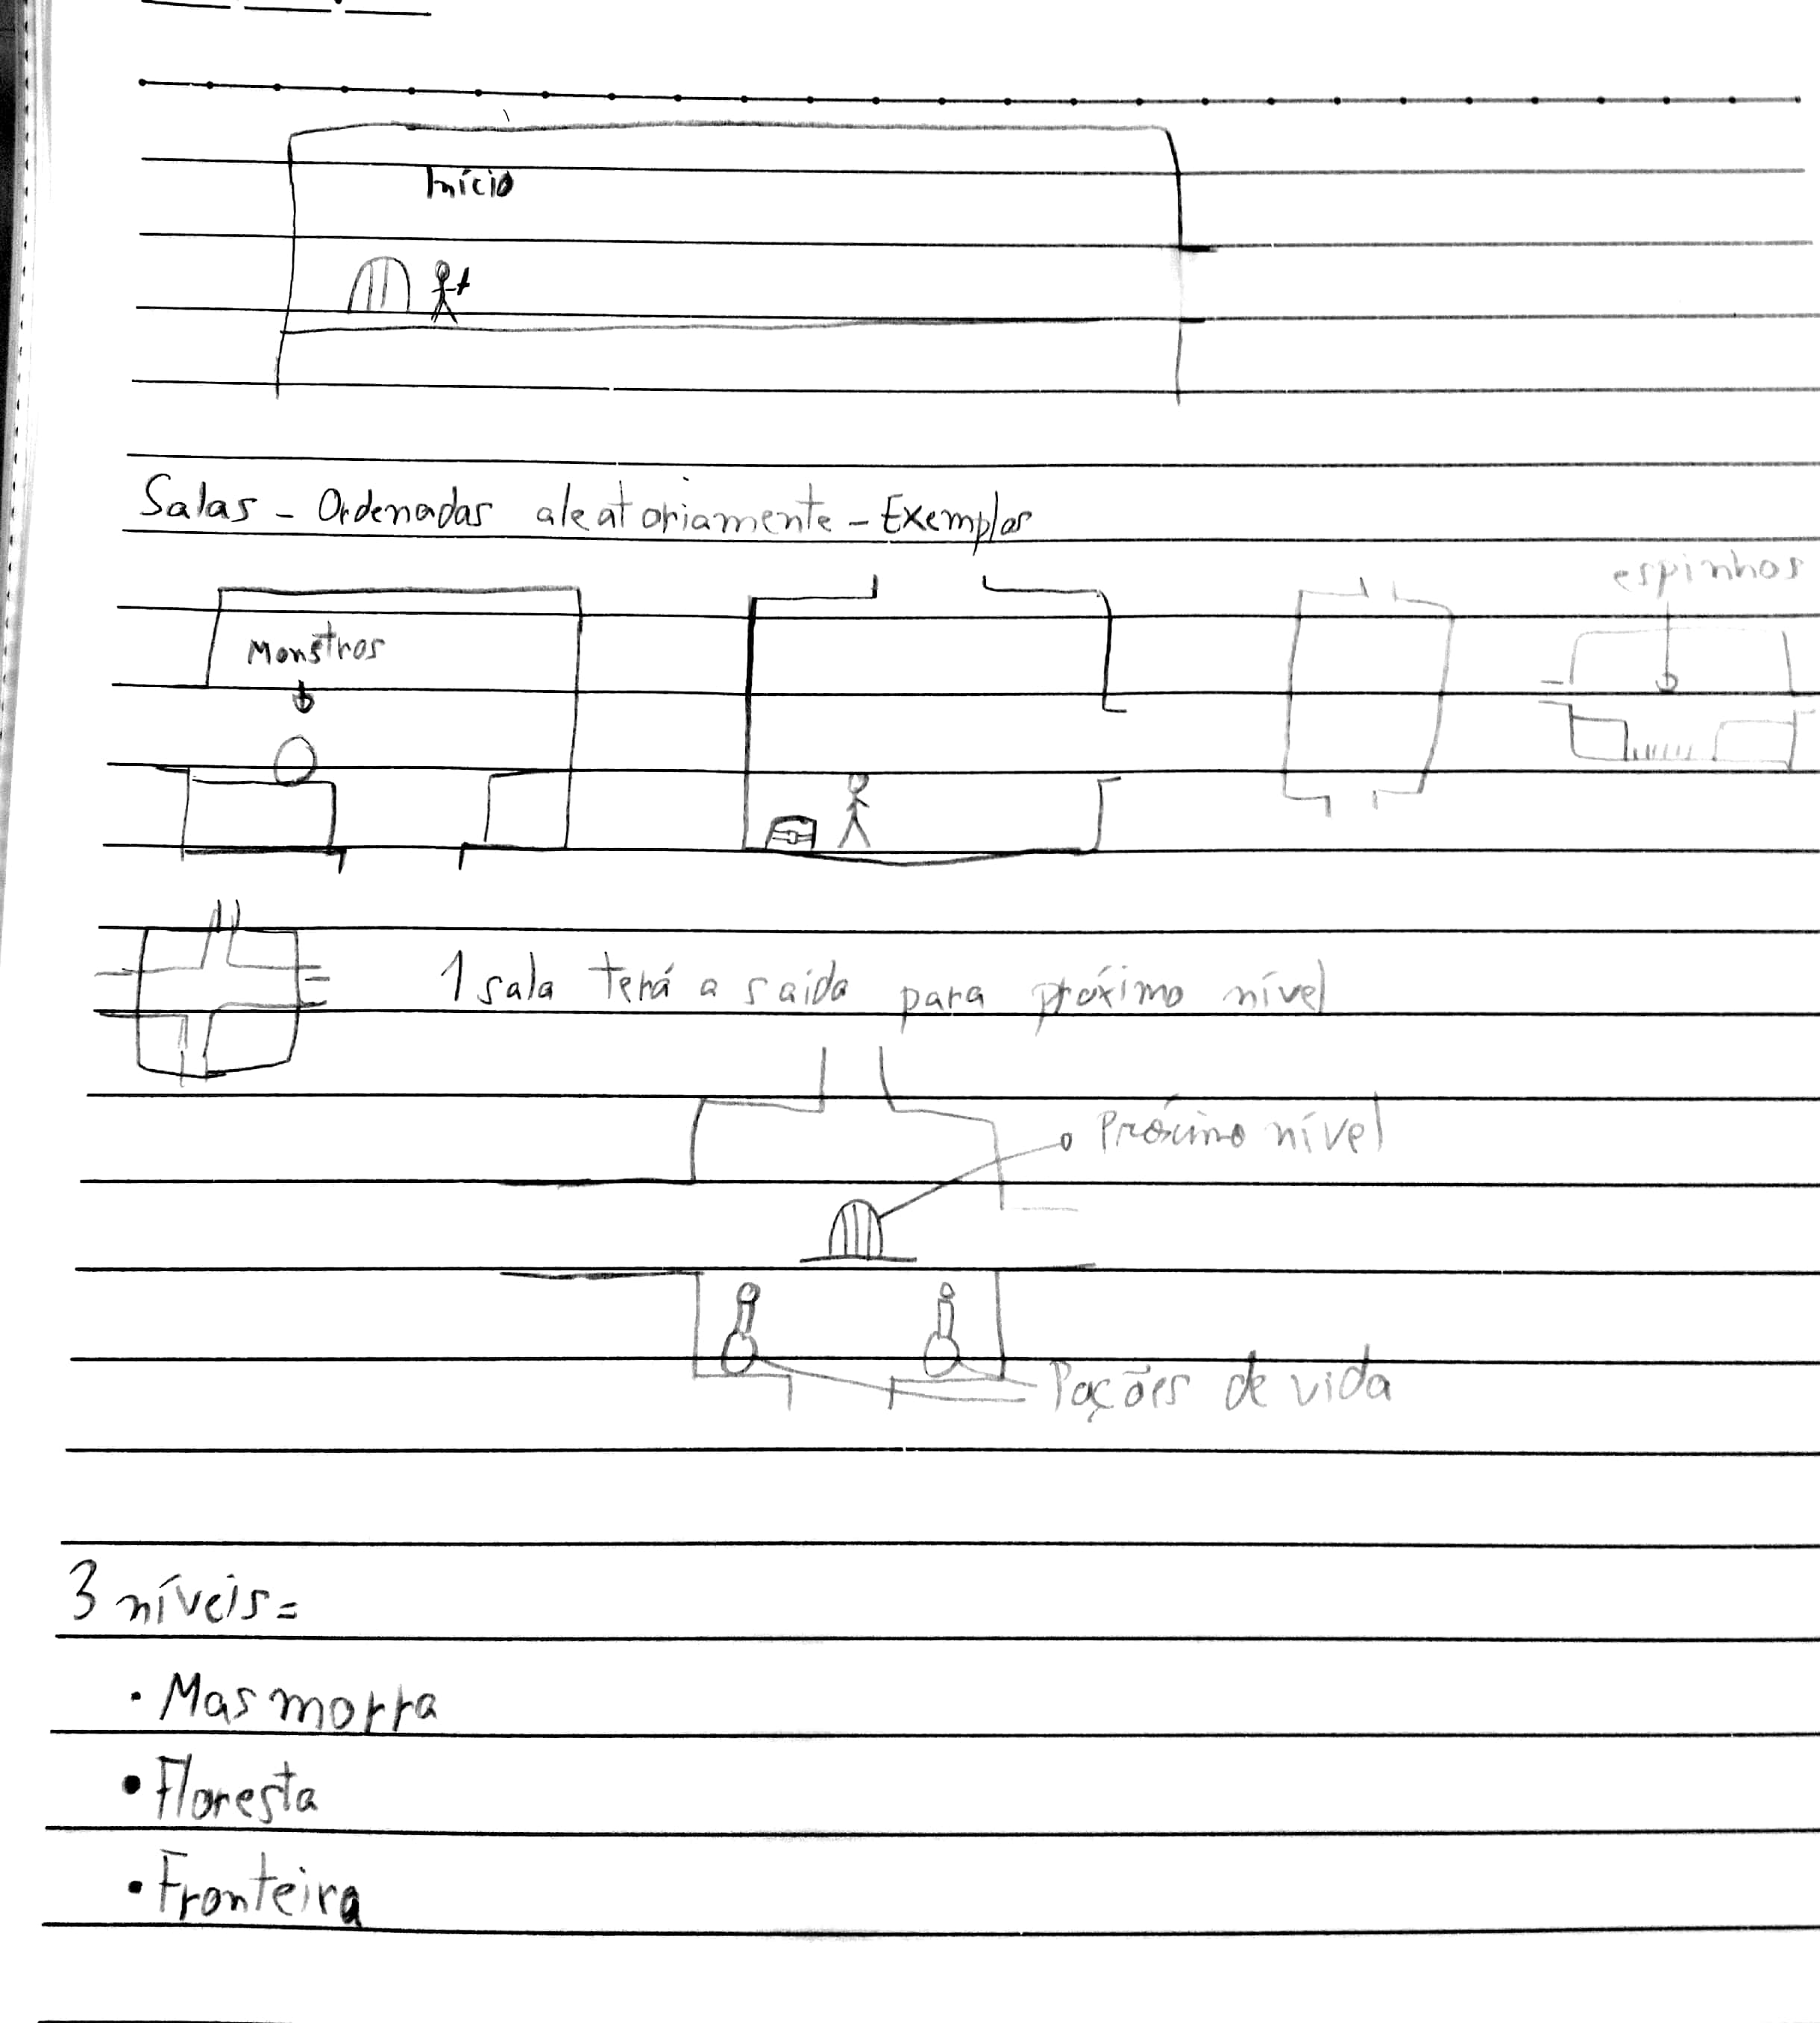 Início
Salas - Ordenadas aleatoriamente - Exemplos
espinhos
Monstros
1 sala terá a saída para próximo nível
Próximo nível
Poções de vida
3 níveis=
• Masmorra
• Floresta
• Fronteira